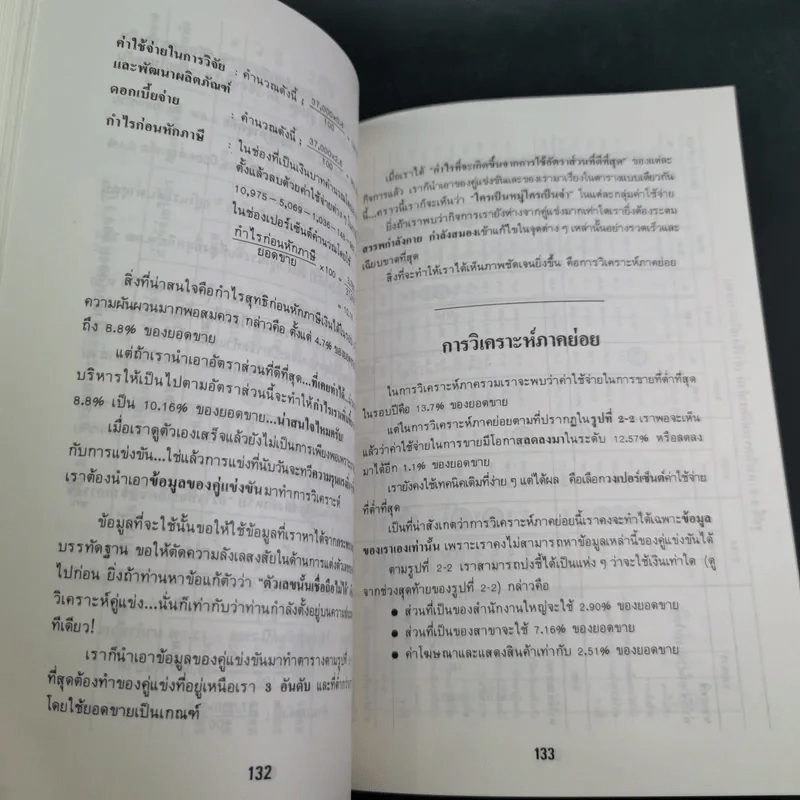 ค่าใช้จ่ายในการวิจัย
และพัฒนาผลิตภัณฑ์ : คำนวณดังนี้ ;
100
ดอกเบี้ยจ่าย : คำนวณดังนี้ ;
100
กำไรก่อนหักภาษี : ในช่องที่เป็นเงินบาทคำนวณ
ตั้งแล้วลบด้วยค่าใช้จ่ายต่าง ๆ
10,975-5,069-1,036-148-
ในช่องเปอร์เซ็นต์คำนวณโดยใช้
กำไรก่อนหักภาษี ×100 =
ยอดขาย
สิ่งที่น่าสนใจคือกำไรสุทธิก่อนหักภาษีเงินได้ใน
ความผันผวนมากพอสมควร กล่าวคือ ตั้งแต่ 4.7%
ถึง 8.8% ของยอดขาย
แต่ถ้าเรานำเอาอัตราส่วนที่ดีที่สุด...ที่เคยทำได้...
บริหารให้เป็นไปตามอัตราส่วนนี้จะทำให้กำไรเรา
8.8% เป็น 10.16% ของยอดขาย...น่าสนใจไหมครับ
เมื่อเราดูตัวเองเสร็จแล้วยังไม่เป็นการเพียงพอเพราะ
กับการแข่งขัน...ใช่แล้วการแข่งที่นับวันจะทวีความรุนแรง
เราต้องนำเอาข้อมูลของคู่แข่งขันมาทำการวิเคราะห์
ข้อมูลที่จะใช้นั้นขอให้ใช้ข้อมูลที่เราหาได้จาก
บรรทัดฐาน ขอให้ตัดความลังเลสงสัยในด้านการแต่งตัว
ไปก่อน ยิ่งถ้าท่านหาข้อแก้ตัวว่า "ตัวเลขนั้นเชื่อถือไม่ได้"
วิเคราะห์คู่แข่ง...นั่นก็เท่ากับว่าท่านกำลังตั้งอยู่บนความ
ทีเดียว!
เราก็นำเอาข้อมูลของคู่แข่งขันมาทำตารางตามรูปที่
ที่สุดต้องทำของคู่แข่งที่อยู่เหนือเรา 3 อันดับ และที่ต่ำกว่า
โดยใช้ยอดขายเป็นเกณฑ์
132
เมื่อเราได้ "กำไรที่จะเกิดขึ้นจากการใช้อัตราส่วนที่ดีที่สุด" ของแต่ละ
กิจการแล้ว เราก็นำเอาของคู่แข่งขันและของเรามาเรียงในตารางแบบเดียวกัน
นี้...คราวนี้เราก็จะเห็นว่า "ใครเป็นหมู่ใครเป็นจ่า" ในแต่ละกลุ่มค่าใช้จ่าย
ยิ่งถ้าเราพบว่ากิจการเรายังห่างจากคู่แข่งมากเท่าใดเรายิ่งต้องระดม
สรรพกำลังกาย กำลังสมองเข้าแก้ไขในจุดต่าง ๆ เหล่านั้นอย่างรวดเร็วและ
เฉียบขาดที่สุด
สิ่งที่จะทำให้เราได้เห็นภาพชัดเจนยิ่งขึ้น คือการวิเคราะห์ภาคย่อย
การวิเคราะห์ภาคย่อย
ในการวิเคราะห์ภาครวมเราจะพบว่าค่าใช้จ่ายในการขายที่ต่ำที่สุด
ในรอบปีคือ 13.7% ของยอดขาย
แต่ในการวิเคราะห์ภาคย่อยตามที่ปรากฏในรูปที่ 2-2 เราพอจะเห็น
แล้วว่าค่าใช้จ่ายในการขายมีโอกาสลดลงมาในระดับ 12.57% หรือลดลง
มาได้อีก 1.1% ของยอดขาย
เรายังคงใช้เทคนิคเดิมที่ง่าย ๆ แต่ได้ผล คือเลือกวงเปอร์เซ็นต์ค่าใช้จ่าย
ที่ต่ำที่สุด
เป็นที่น่าสังเกตว่าการวิเคราะห์ภาคย่อยนี้เราคงจะทำได้เฉพาะข้อมูล
ของเราเองเท่านั้น เพราะเราคงไม่สามารถหาข้อมูลเหล่านี้ของคู่แข่งขันได้
ตามรูปที่ 2-2 เราสามารถบ่งชี้ได้เป็นแห่ง ๆ ว่าจะใช้เงินเท่าใด (ดู
จากช่วงสุดท้ายของรูปที่ 2-2) กล่าวคือ
● ส่วนที่เป็นของสำนักงานใหญ่จะใช้ 2.90% ของยอดขาย
● ส่วนที่เป็นของสาขาจะใช้ 7.16% ของยอดขาย
● ค่าโฆษณาและแสดงสินค้าเท่ากับ 2.51% ของยอดขาย
133